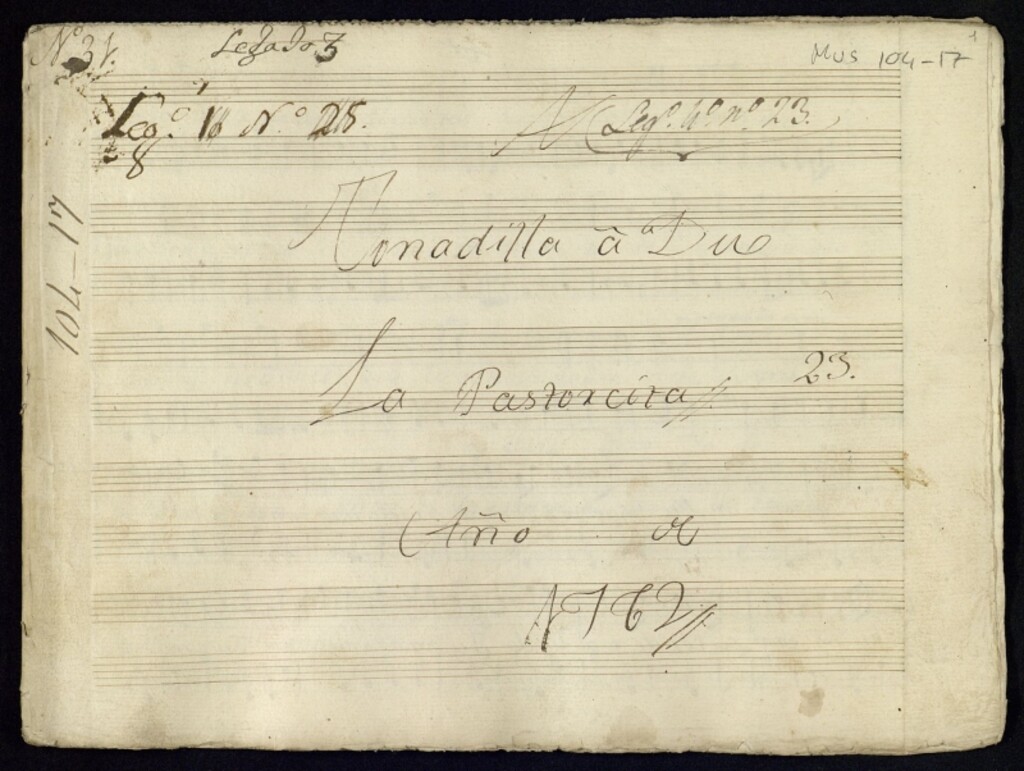 Nº 31.
Legado 3
Mus 104-17
1
Leg.º 16 N.º 215.
8
Leg.º 4.º n.º 23.
104-17
Tonadilla â Duo
La Pastorcita //
23.
Año de
1762 //